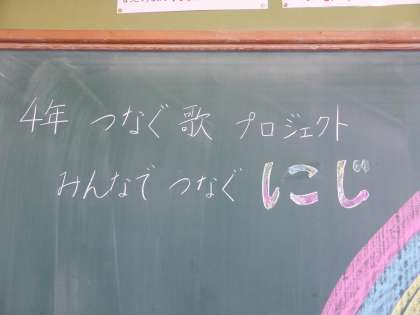 4年 つなぐ歌 プロジェクト
みんなで つなぐ にじ